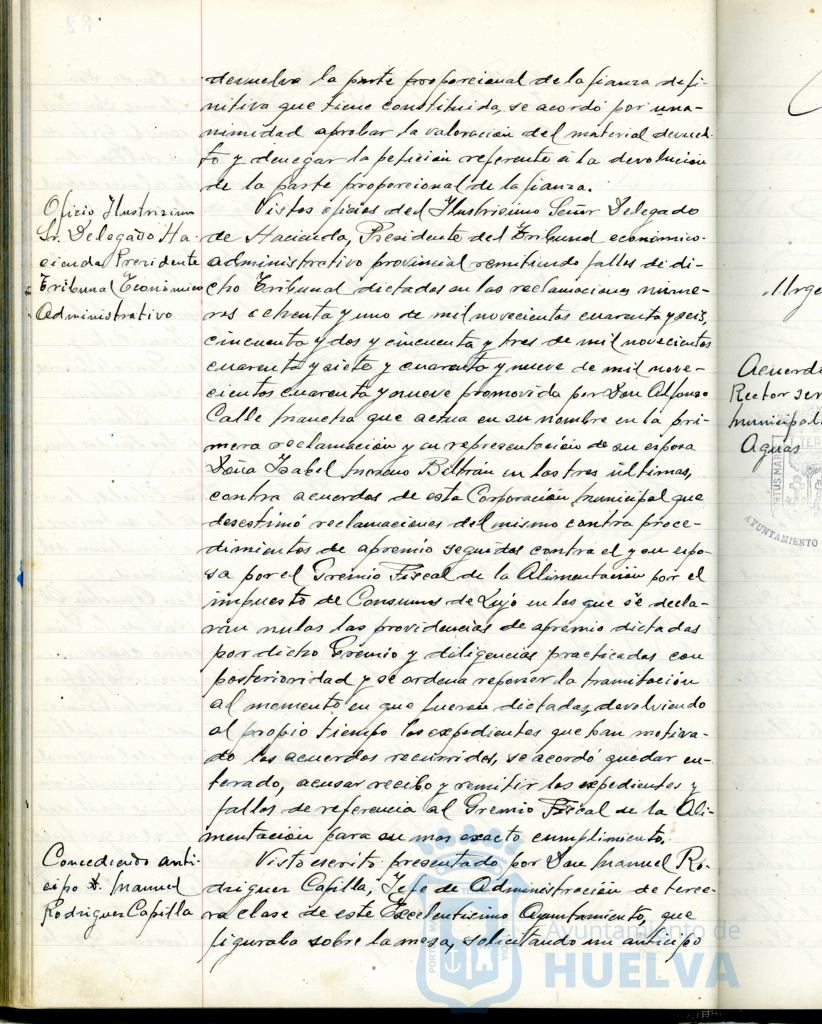 devuelva la parte proporcional de la fianza defi-
nitiva que tiene constituida, se acordó por una-
nimidad aprobar la valoración del material devuel-
to y denegar la petición referente a la devolución
de la parte proporcional de la fianza.
Oficio Ilustrísimo
Sr. Delegado Ha-
cienda Presidente
Tribunal Económico
Administrativo
Vistos oficios del Ilustrísimo Señor Delegado
de Hacienda, Presidente del Tribunal económico-
administrativo provincial remitiendo fallos de di-
cho Tribunal dictados en las reclamaciones núme-
ros ochenta y uno de mil novecientos cuarenta y seis,
cincuenta y dos y cincuenta y tres de mil novecientos
cuarenta y siete y cuarenta y nueve de mil nove-
cientos cuarenta y nueve promovida por Don Alfonso
Calle que actua en su nombre en la pri-
mera reclamación y en representación de su esposa
Doña Isabel Moreno Beltrán en las tres últimas,
contra acuerdos de esta Corporación Municipal que
desestimó reclamaciones del mismo contra proce-
dimientos de apremio seguidos contra el y su espo-
sa por el Gremio Fiscal de la Alimentación por el
impuesto de Consumos de Lujo en los que se decla-
rán nulas las providencias de apremio dictadas
por dicho Gremio y diligencias practicadas con
posterioridad y se ordena reponer la tramitación
al momento en que fueron dictadas, devolviendo
al propio tiempo los expedientes que han motiva-
do los acuerdos recurridos, se acordó quedar en-
terado, acusar recibo y remitir los expedientes y
fallos de referencia al Gremio Fiscal de la Ali-
mentación para su mas exacto cumplimiento.
Concediendo anti-
cipo D. Manuel
Rodriguez Capilla
Visto escrito presentado por Don Manuel Ro-
driguez Capilla, Jefe de Administración de terce-
ra clase de este Excelentísimo Ayuntamiento, que
figuraba sobre la mesa, solicitando un anticipo
Ayuntamiento de
HUELVA
Acuerdo
Rector ser
municipal
Aguas
AYUNTAMIENTO